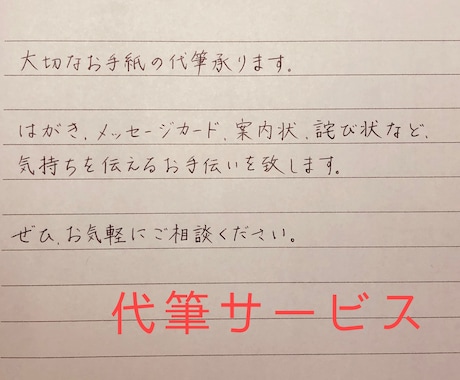 大切なお手紙の代筆承ります。
はがき、メッセージカード、案内状、詫び状など、
気持ちを伝えるお手伝いを致します。
ぜひ、お気軽にご相談ください。
代筆サービス